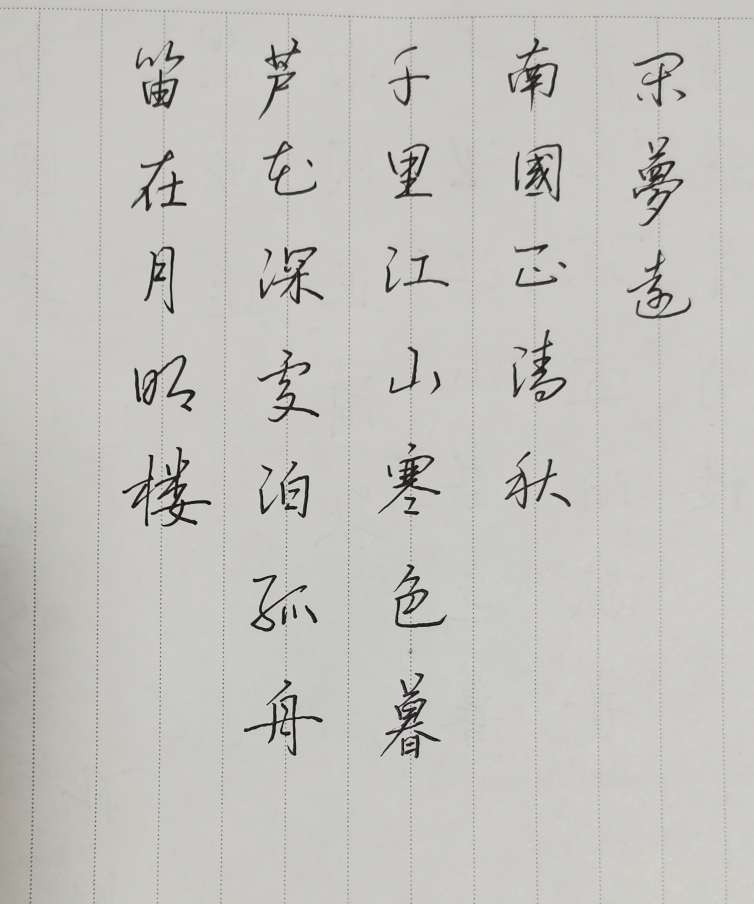 闲夢遠
南國正清秋
千里江山寒色暮
芦花深處泊孤舟
笛在月明楼